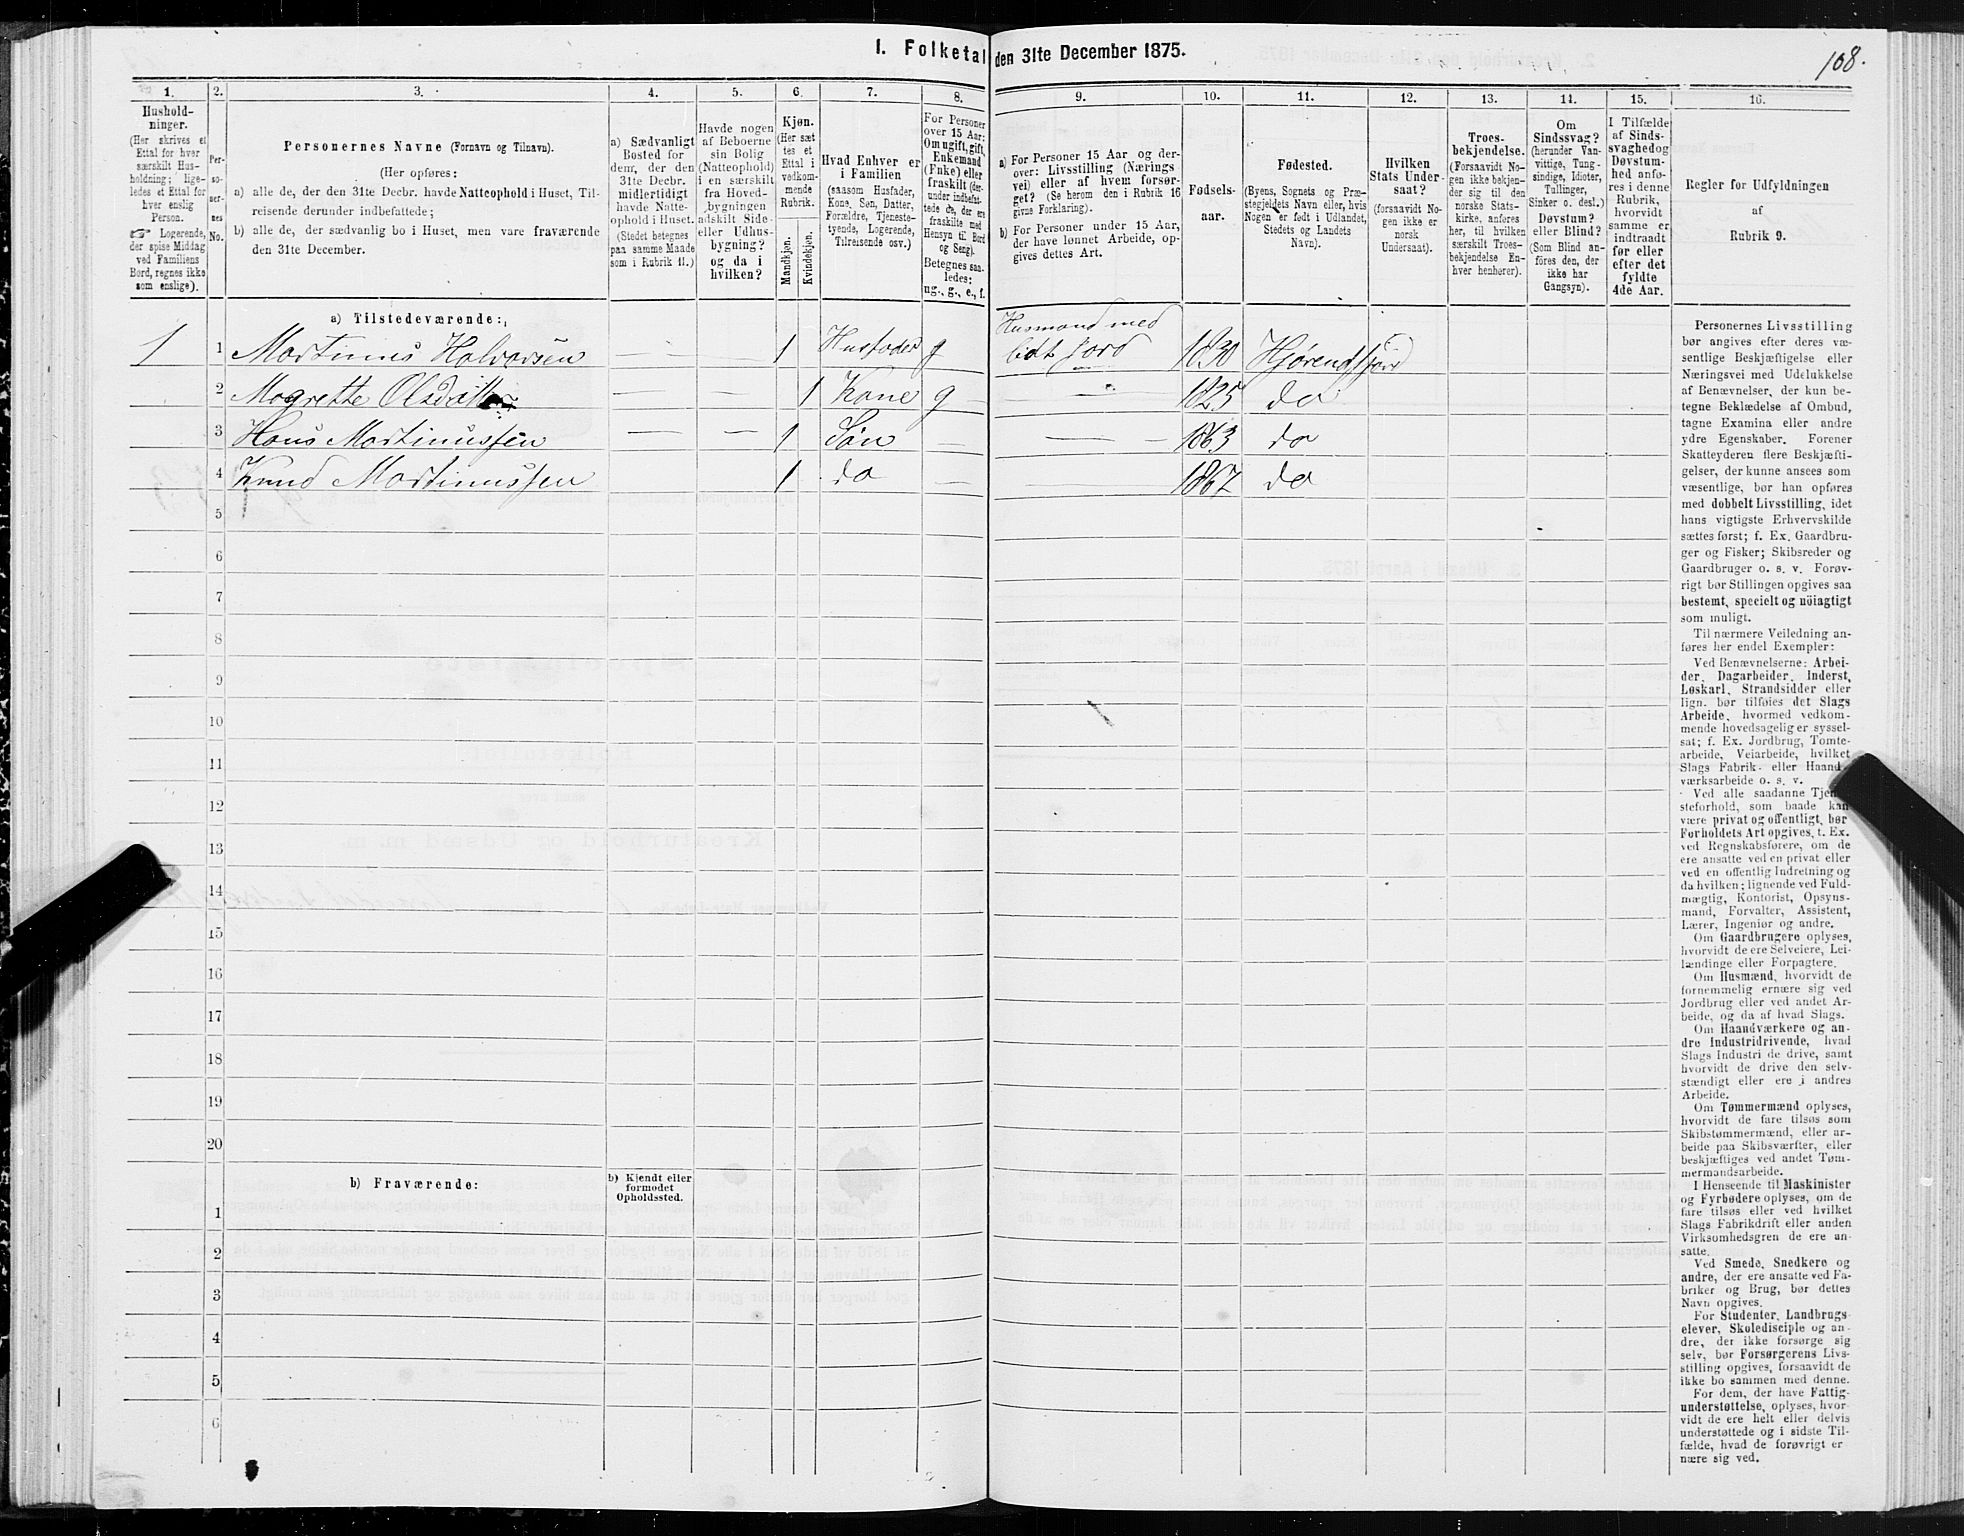 1. Folketal den 31te December 1875.
108.
1. 2. 3. 4. 5. 6. 7. 8. 9. 10. 11. 12. 13. 14. 15. 16.
Hushold-
ninger.
(Her skrives et
Ettal for hver
særskilt Hus-
holdning; lige-
ledes et Ettal for
hver enslig
Person.
☞ Logerende,
der spise Middag
ved Familiens
Bord, regnes ikke
som enslige).
Per-
so-
ner-
nes
No.
Personernes Navne (Fornavn og Tilnavn).
(Her opføres:
a) alle de, der den 31te Decbr. havde Natteophold i Huset, Til-
reisende derunder indbefattede;
b) alle de, der sædvanlig bo i Huset, men vare fraværende
den 31te December.
a) Sædvanligt
Bosted for
dem, der den
31te Decbr.
midlertidigt
havde Natte-
ophold i Huset.
(Stedet betegnes
paa samme Maade
som i Rubrik 11.)
Havde nogen
af Beboerne
sin Bolig
(Natteophold)
i en særskilt
fra Hoved-
bygningen
adskilt Side-
eller Udhus-
bygning?
og da i
hvilken?
Kjøn.
(Her sæt-
tes et
Ettal i
vedkom-
mende
Rubrik.
Mandkjøn.
Kvindekjøn.
Hvad Enhver er
i Familien
(saasom Husfader,
Kone, Søn, Datter,
Forældre, Tjeneste-
tyende, Logerende,
Tilreisende osv.)
For Personer
over 15 Aar:
Om ugift, gift,
Enkemand
(Enke) eller
fraskilt (der-
under indbefat-
tede de, der ere
fraskilte med
Hensyn til Bord
og Seng).
Betegnes saa-
ledes:
ug., g., e., f.
a) For Personer 15 Aar og der-
over: Livsstilling (Nærings-
vei) eller af hvem forsør-
get? (Se herom den i Rubrik 16
givne Forklaring).
b) For Personer under 15 Aar,
der have lønnet Arbeide, op-
gives dettes Art.
Fødsels-
aar.
Fødested.
(Byens, Sognets og Præ-
stegjeldets Navn eller, hvis
Nogen er født i Udlandet,
Stedets og Landets
Navn).
Hvilken
Stats Under-
saat?
(forsaavidt No-
gen ikke er
norsk
Undersaat).
Troes-
bekjendelse.
(Forsaavidt No-
gen ikke bekjen-
der sig til den
norske Stats-
kirke, anføres
her, til hvilken
særskilt Troes-
bekjendelse En-
hver henhører).
Om
Sindssvag?
(herunder Van-
vittige, Tung-
sindige, Idioter,
Tullinger,
Sinker o. desl.)
Døvstum?
eller Blind?
(Som Blind an-
føres den, der
ikke har
Gangsyn).
I Tilfælde
af Sinds-
svaghed og
Døvstum-
hed anfø-
res i denne
Rubrik,
hvorvidt
samme er
indtraadt
før eller
efter det
fyldte
4de Aar.
Regler for Udfyldningen
af
Rubrik 9.
a) Tilstedeværende:
1 1 Martinus Halvorsen — — 1 Husfader g Husmand med
lidt Jord 1830 Hjørendfjord
2 Magrette Olsdatter — — 1 Kone g — " — 1825 do
3 Hans Martinussen — — 1 Søn — — — 1863 do
4 Knud Martinussen 1 do — — 1867 do
5
6
7
8
9
10
11
12
13
14
15
16
17
18
19
20
b) Fraværende:
b) Kjendt eller
formodet
Opholdssted.
1
2
3
4
5
6
Personernes Livsstilling
bør angives efter deres væ-
sentlige Beskjæftigelse eller
Næringsvei med Udelukkelse
af Benævnelser, der kun be-
tegne Beklædelse af Ombud,
tagne Examina eller andre
ydre Egenskaber. Forener
Skatteyderen flere Beskjæfti-
gelser, der kunne ansees som
væsentlige, bør han opføres
med dobbelt Livsstilling, idet
hans vigtigste Erhvervskilde
sættes først; f. Ex. Gaardbru-
ger og Fisker; Skibsreder og
Gaardbruger o. s. v. Forøv-
rigt bør Stillingen opgives saa
bestemt, specielt og nöiagtigt
som muligt.
Til nærmere Veiledning an-
føres her endel Exempler:
Ved Benævnelserne: Arbei-
der, Dagarbeider, Inderst,
Løskarl, Strandsidder eller
lign. bør tilføies det Slags
Arbeide, hvormed vedkom-
mende hovedsagelig er syssel-
sat; f. Ex. Jordbrug, Tomte-
arbeide, Veiarbeide, hvilket
Slags Fabrik- eller Haand-
værksarbeide o. s. v.
Ved alle saadanne Tjene-
steforhold, som baade kan
være privat og offentligt, bør
Forholdets Art opgives, t. Ex.
ved Regnskabsførere, om de
ere ansatte ved en privat eller
ved en offentlig Indretning og
da hvilken; lignende ved Fuld-
mægtig, Kontorist, Opsyns-
mand, Forvalter, Assistent,
Lærer, Ingeniør og andre.
Om Gaardbrugere oplyses,
hvorvidt de ere Selveiere, Lei-
lændinge eller Forpagtere.
Om Husmænd, hvorvidt de
fornemmelig ernære sig ved
Jordbrug eller ved andet Ar-
beide, og da af hvad Slags.
Om Haandværkere og an-
dre Industridrivende, hvad
Slags Industri de drive, samt
hvorvidt de drive den selv-
stændigt eller ere i andres
Arbeide.
Om Tømmermænd oplyses,
hvorvidt de fare tilsøs som
Skibstømmermænd, eller ar-
beide paa Skibsværfter, eller
beskjæftiges ved andet Tøm-
mermandsarbeide.
I Henseende til Maskinister
og Fyrbødere oplyses, om de
fare tilsøs eller ved hvilket
Slags Fabrikdrift eller anden
Virksomhedsgren de ere an-
satte.
Ved Smede, Snedkere og
andre, der ere ansatte ved Fa-
briker og Brug, bør dettes
Navn opgives.
For Studenter, Landbrugs-
elever, Skoledisciple og an-
dre, der ikke forsørge sig
selv, bør Forsørgerens Livs-
stilling opgives, forsaavidt de
ikke bo sammen med denne.
For dem, der have Fattig-
understøttelse, oplyses, hvor-
vidt de ere helt eller delvis
understøttede og i sidste Til-
fælde, hvad de forøvrigt er
nære sig ved.